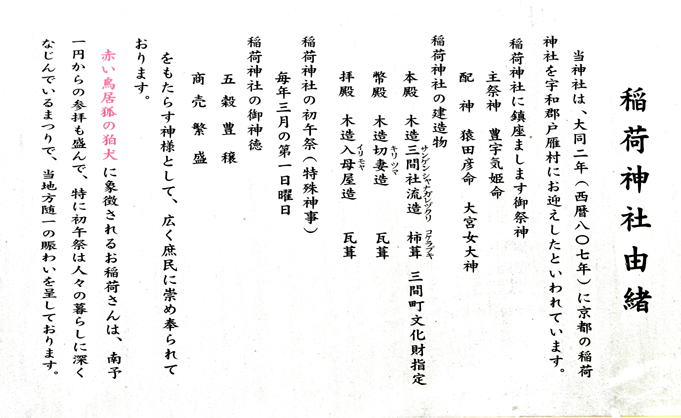 稲荷神社由緒
当神社は、大同二年（西暦八〇七年）に京都の稲荷
神社を宇和郡戸雁村にお迎えしたといわれています。
稲荷神社に鎮座まします御祭神
主祭神　豊宇気姫命
配　神　猿田彦命　大宮女大神
稲荷神社の建造物
本殿　木造三間社流造　柿葺　三間町文化財指定
サンゲンシャナガレヅクリ　コケラブキ
幣殿　木造切妻造　瓦葺
キリツマ
拝殿　木造入母屋造　瓦葺
イリモヤ
稲荷神社の初午祭（特殊神事）
毎年三月の第一日曜日
稲荷神社の御神徳
五穀豊穣
商売繁盛
をもたらす神様として、広く庶民に崇め奉られて
おります。
赤い鳥居狐の狛犬に象徴されるお稲荷さんは、南予
一円からの参拝も盛んで、特に初午祭は人々の暮らしに深く
なじんでいるまつりで、当地方随一の賑わいを呈しております。